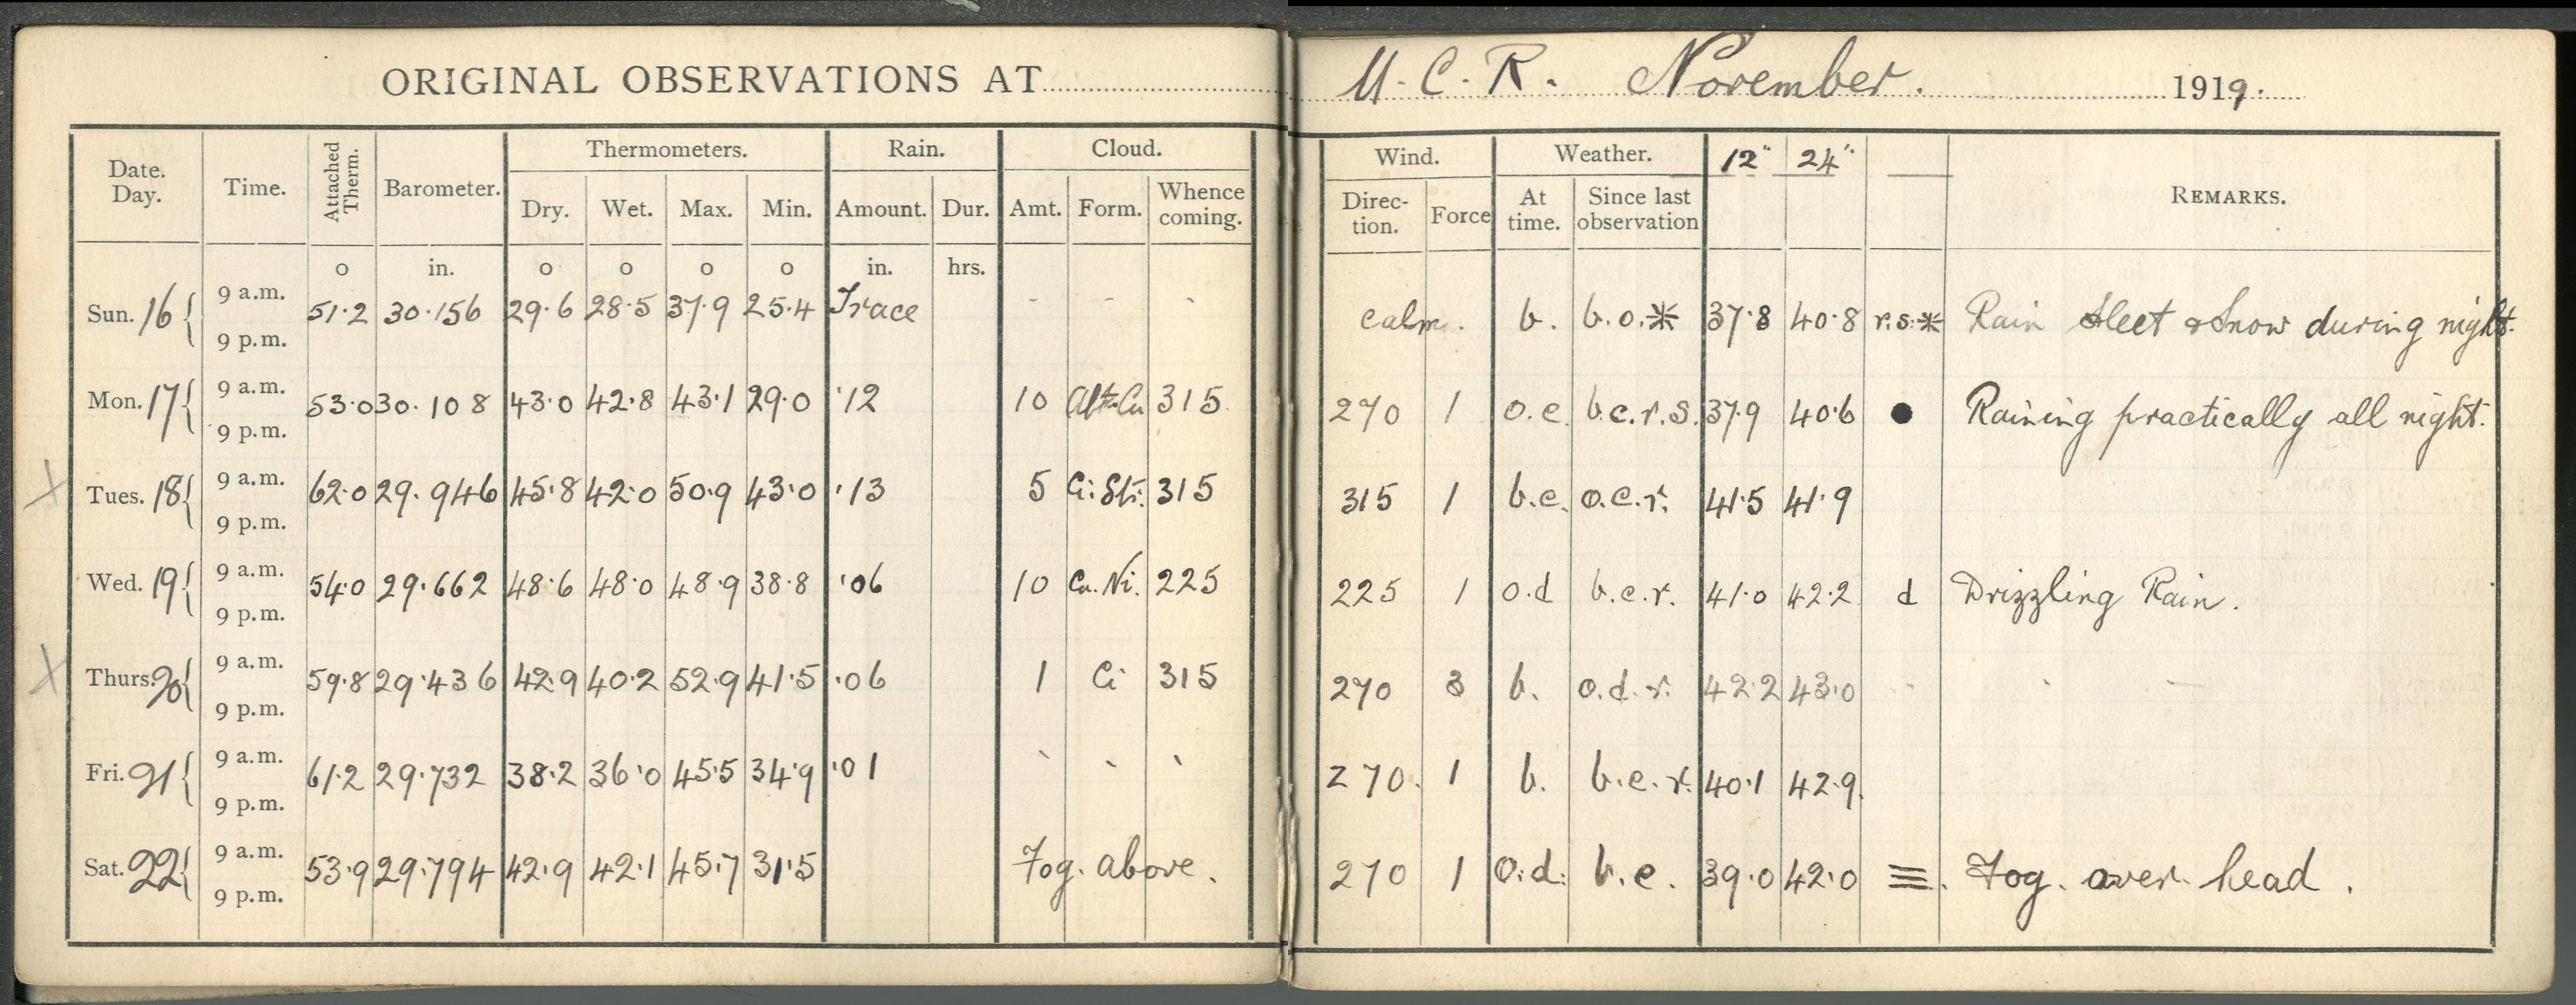 ORIGINAL OBSERVATIONS AT M. C. R. November. 1919.
Date. Day. Time. Attached Therm. Barometer. Thermometers. Rain. Cloud. Wind. Weather. 12" 24" REMARKS.
Dry. Wet. Max. Min. Amount. Dur. Amt. Form. Whence coming. Direction. Force At time. Since last observation
o in. o o o o in. hrs.
Sun. 16 { 9 a.m. 51.2 30.156 29.6 28.5 37.9 25.4 Trace - - - calm. b. b.o.* 37.8 40.8 r.s.* Rain Sleet & Snow during night.
9 p.m.
Mon. 17 { 9 a.m. 53.0 30.108 43.0 42.8 43.1 29.0 .12 10 Alt-Cu 315 270 1 o.c. b.c.r.s. 37.9 40.6 ● Raining practically all night.
9 p.m.
X Tues. 18 { 9 a.m. 62.0 29.946 45.8 42.0 50.9 43.0 .13 5 Ci. Str. 315 315 1 b.c. o.c.r. 41.5 41.9
9 p.m.
Wed. 19 { 9 a.m. 54.0 29.662 48.6 48.0 48.9 38.8 .06 10 Cu. Ni. 225 225 1 o.d b.c.r. 41.0 42.2 d Drizzling Rain.
9 p.m.
X Thurs. 20 { 9 a.m. 59.8 29.436 42.9 40.2 52.9 41.5 .06 1 Ci 315 270 3 b. o.d.r. 42.2 43.0 - - -
9 p.m.
Fri. 21 { 9 a.m. 61.2 29.732 38.2 36.0 45.5 34.9 .01 - - - 270. 1 b. b.c.r. 40.1 42.9.
9 p.m.
Sat. 22 { 9 a.m. 53.9 29.794 42.9 42.1 45.7 31.5 Fog. above. 270 1 o.d. b.c. 39.0 42.0 ≡. Fog. over head.
9 p.m.